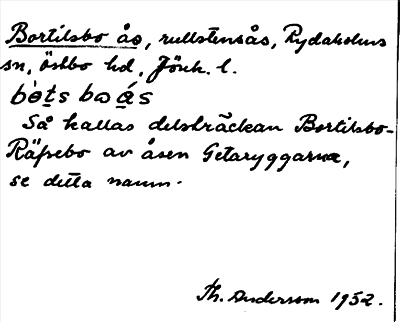 Bortilsbo ås, rullstensås, Rydaholms
sn, östbo hd, Jönk. l.
bo̩ts bω ás
Så kallas delsträckan Bortilsbo-
Räpsebo av åsen Getaryggarna,
se detta namn.
Th. Andersson 1952.